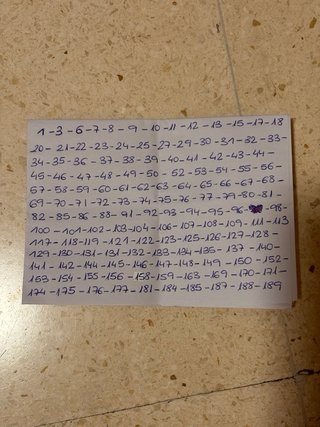 1 - 3 - 6 - 7 - 8 - 9 - 10 - 11 - 12 - 13 - 15 - 17 - 18
20 - 21 - 22 - 23 - 24 - 25 - 27 - 29 - 30 - 31 - 32 - 33 -
34 - 35 - 36 - 37 - 38 - 39 - 40 - 41 - 42 - 43 - 44 -
45 - 46 - 47 - 48 - 49 - 50 - 52 - 53 - 54 - 55 - 56 -
57 - 58 - 59 - 60 - 61 - 62 - 63 - 64 - 65 - 66 - 67 - 68 -
69 - 70 - 71 - 72 - 73 - 74 - 75 - 76 - 77 - 79 - 80 - 81 -
82 - 85 - 86 - 88 - 91 - 92 - 93 - 94 - 95 - 96 - 98 -
100 - 101 - 102 - 103 - 104 - 106 - 107 - 108 - 109 - 111 - 113
117 - 118 - 119 - 121 - 122 - 123 - 125 - 126 - 127 - 128 -
129 - 130 - 131 - 131 - 132 - 133 - 134 - 135 - 137 - 140 -
141 - 142 - 144 - 145 - 146 - 147 - 148 - 149 - 150 - 152 -
153 - 154 - 155 - 156 - 158 - 159 - 163 - 169 - 170 - 171 -
174 - 175 - 176 - 177 - 181 - 184 - 185 - 187 - 188 - 189